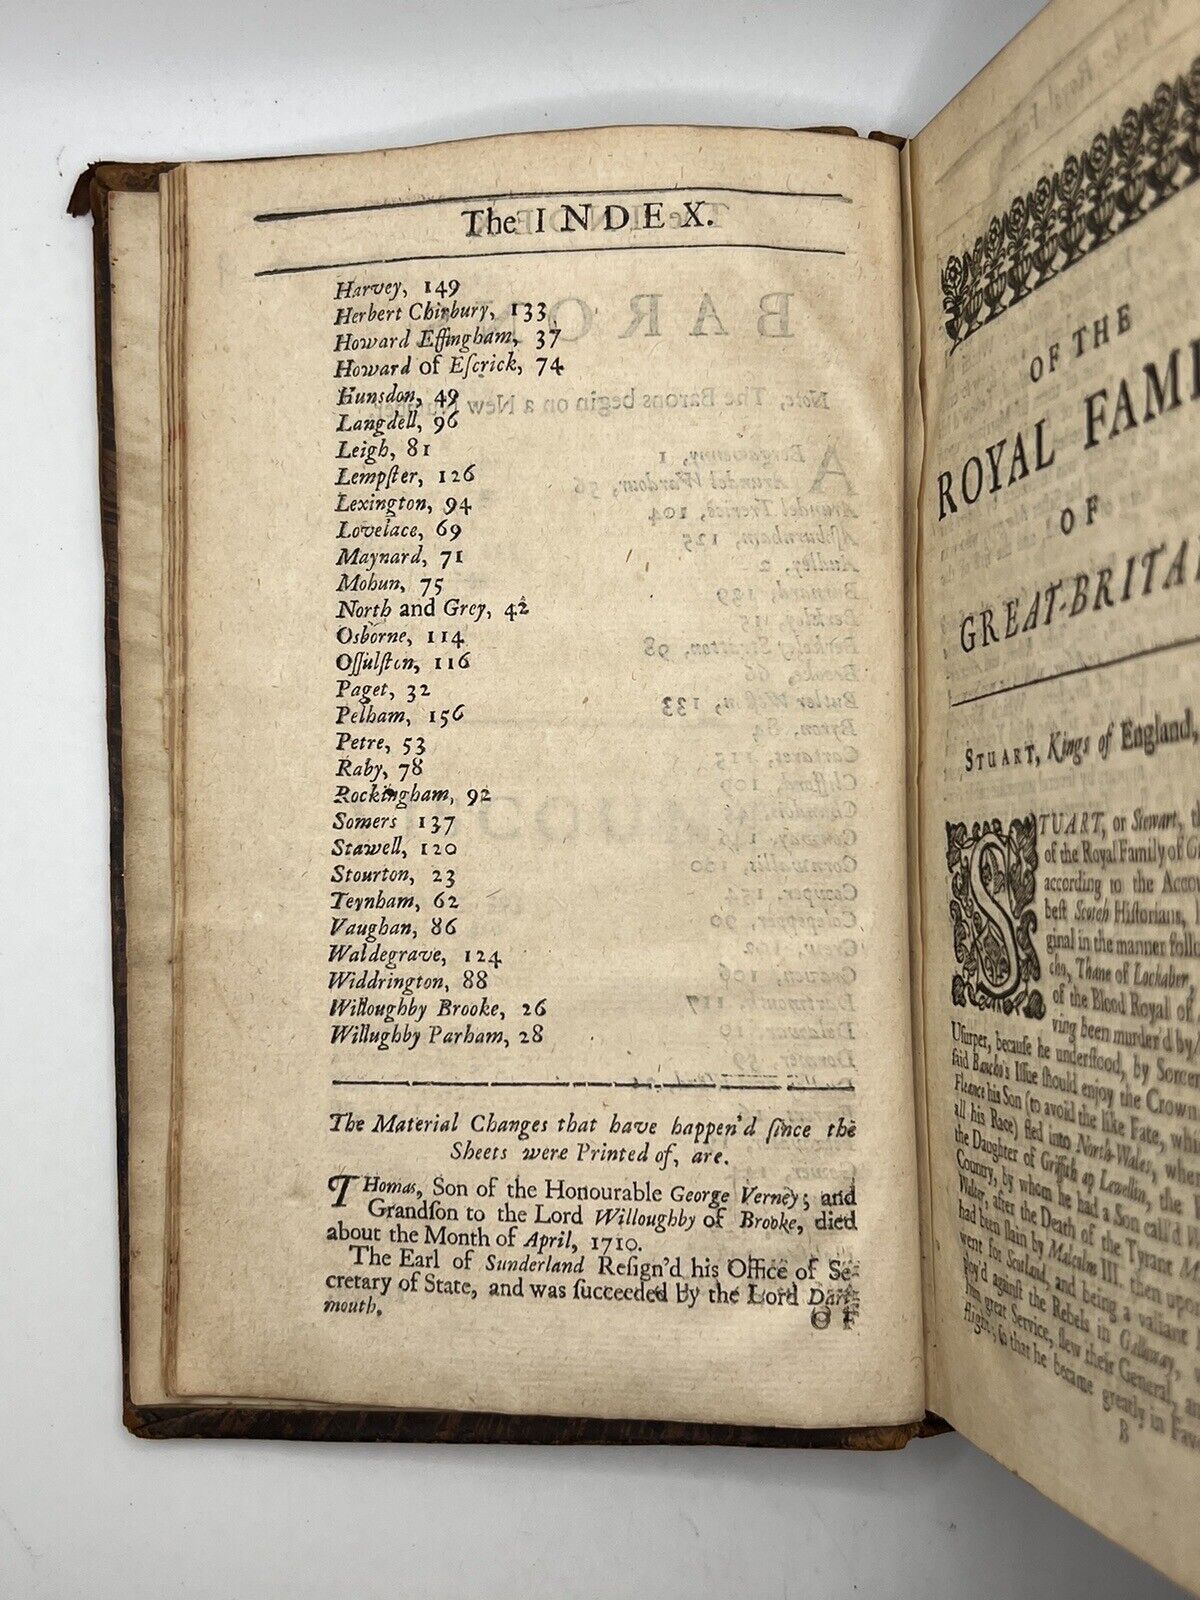 The INDEX.
Harvey, 149
Herbert Chirbury, 133
Howard Effingham, 37
Howard of Eſcrick, 74
Hunsdon, 49
Langdell, 96
Leigh, 81
Lempſter, 126
Lexington, 94
Lovelace, 69
Maynard, 71
Mohun, 75
North and Grey, 42
Osborne, 114
Oſſulſton, 116
Paget, 32
Pelham, 156
Petre, 53
Raby, 78
Rockingham, 92
Somers 137
Stawell, 120
Stourton, 23
Teynham, 62
Vaughan, 86
Waldegrave, 124
Widdrington, 88
Willoughby Brooke, 26
Willughby Parham, 28
The Material Changes that have happen'd ſince the
Sheets were Printed of, are.
THomas, Son of the Honourable George Verney; and
Grandſon to the Lord Willoughby of Brooke, died
about the Month of April, 1710.
The Earl of Sunderland Reſign'd his Office of Se-
cretary of State, and was ſucceeded by the Lord Dart-
mouth.
OF
OF THE
ROYAL FAMI
OF
GREAT-BRITAI
STUART, Kings of England,
STUART, or Stewart, th
of the Royal Family of G
according to the Acco
beſt Scotch Hiſtorians,
ginal in the manner follo
cho, Thane of Lochaber,
of the Blood Royal of
ving been murder'd by
Uſurper, becauſe he underſtood, by Sorcer
ſaid Bancho's Iſſue ſhould enjoy the Crown
Fleance his Son (to avoid the like Fate, whi
all his Race) fled into North-Wales, wher
the Daughter of Griffith ap Lewellin, the
Country, by whom he had a Son call'd W
Walter, after the Death of the Tyrant M
had been ſlain by Malcolm III. then upo
went for Scotland, and being a valiant
ploy'd againſt the Rebels in Galloway, w
him great Service, ſlew their General, a
flight; ſo that he became greatly in Fav
B